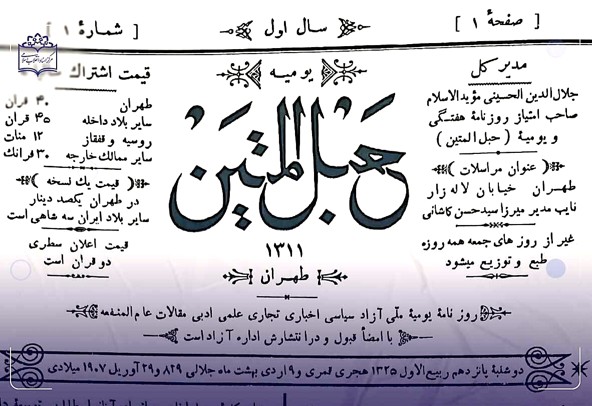 [ صفحهٔ ۱ ]
سال اول
[ شمارهٔ ۱
مدیر کل
جلال‌الدین الحسینی مؤیدالاسلام
صاحب امتیاز روزنامهٔ هفتگی
و یومیهٔ ( حبل‌المتین )
( عنوان مراسلات )
طهران خیابان لاله‌زار
نایب مدیر میرزا سیدحسن کاشانی
غیر از روز های جمعه همه روزه
طبع و توزیع میشود
یومیه
حبل المتین
۱۳۱۱
طهران
قیمت اشتراک
طهران ۴۰ قران
سایر بلاد داخله ۴۵ قران
روسیه و قفقاز ۱۲ منات
سایر ممالک خارجه ۳۰ فرانک
( قیمت یك نسخه )
در طهران یکصد دینار
سایر بلاد ایران سه شاهی است
قیمت اعلان سطری
دو قران است
روزنامهٔ یومیهٔ ملّی آزاد سیاسی اخباری تجاری علمی ادبی مقالات عام‌المنفعه
با امضأ قبول و در انتشارش اداره آزاد است
دوشنبهٔ پانزدهم ربیع‌الاول ۱۳۲۵ هجری قمری و ۹ اردی بهشت ماه جلالی ۸۲۹ و ۲۹ آوریل ۱۹۰۷ میلادی